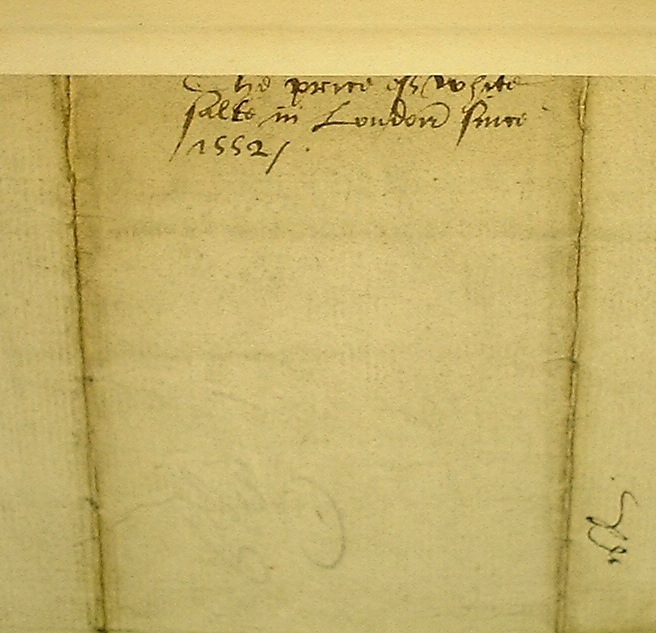 The price of white
salte in London since
1552/